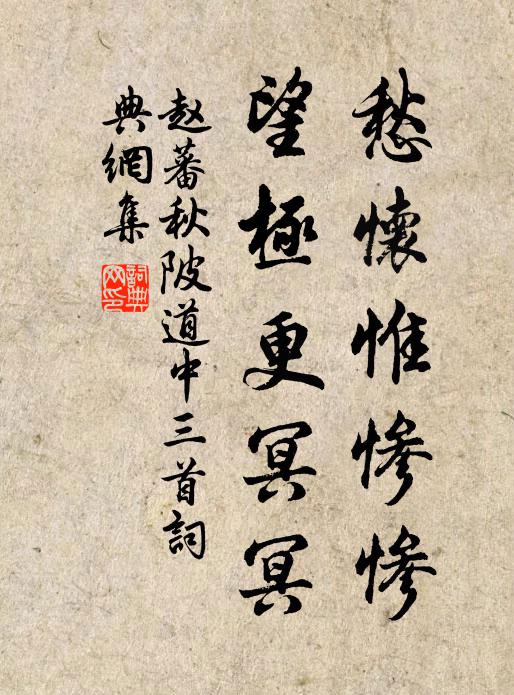 愁懷惟慘慘
望極更冥冥
赵蕃秋陂道中三首詞
典網集
詞典
网印